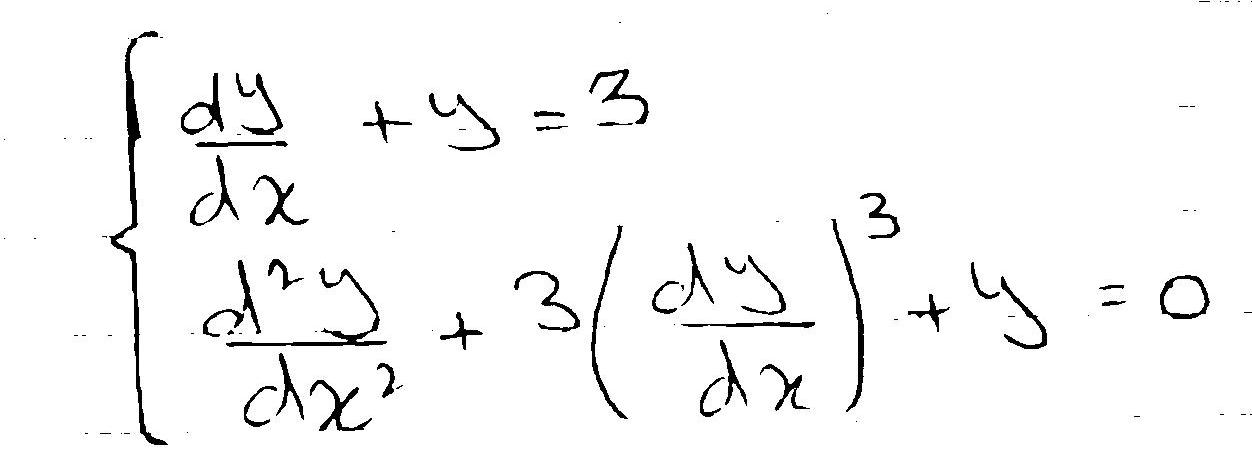 \begin{cases} \frac{dy}{dx} + y = 3 \\ \frac{d^2y}{dx^2} + 3\left(\frac{dy}{dx}\right)^3 + y = 0 \end{cases}